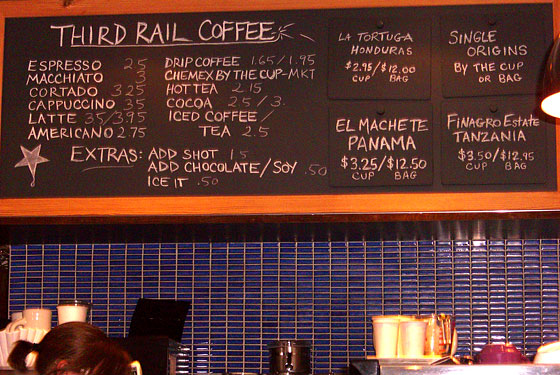 THIRD RAIL COFFEE
ESPRESSO 25
MACCHIATO 3
CORTADO 325
CAPPUCCINO 35
LATTE 35/395
AMERICANO 2.75
DRIP COFFEE 1.65/1.95
CHEMEX BY THE CUP-MKT
HOT TEA 2.15
COCOA 2.5/3.
ICED COFFEE/
TEA 2.5
EXTRAS: ADD SHOT 15
ADD CHOCOLATE/SOY .50
ICE IT .50
LA TORTUGA
HONDURAS
$2.95/$12.00
CUP BAG
SINGLE
ORIGINS
BY THE CUP
OR BAG
EL MACHETE
PANAMA
$3.25/$12.50
CUP BAG
FINAGRO ESTATE
TANZANIA
$3.50/$12.95
CUP BAG